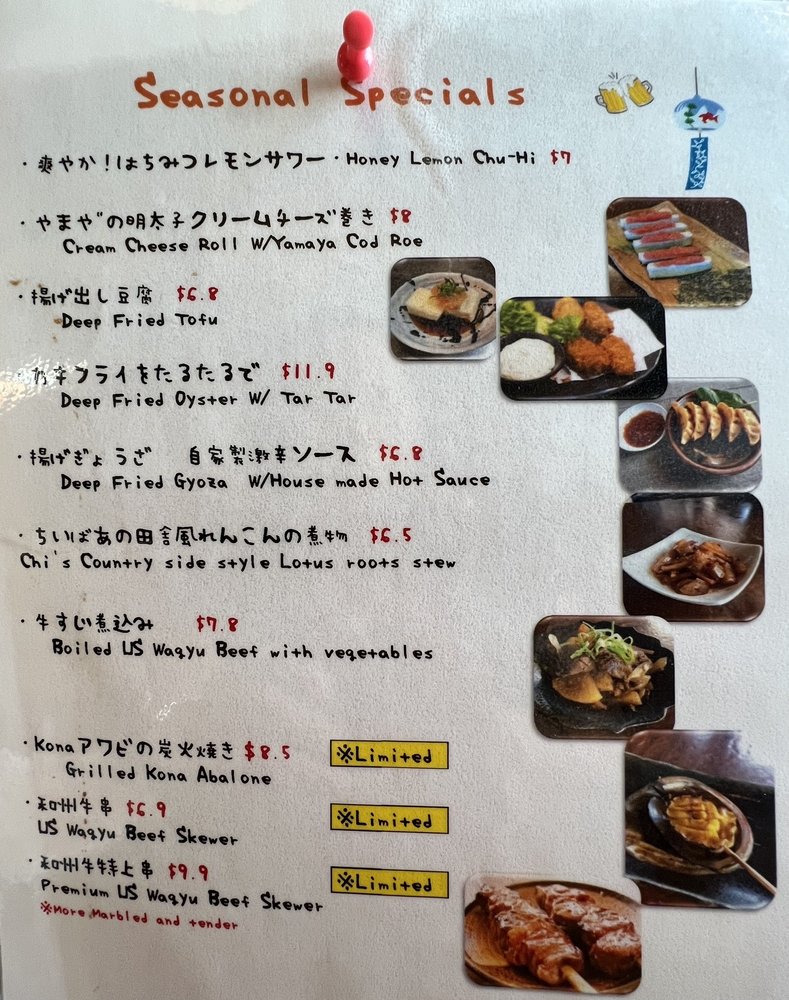 Seasonal Specials
・爽やか！はちみつレモンサワー・Honey Lemon Chu-Hi $7
・やまや"の明太子クリームチーズ巻き $8
Cream Cheese Roll W/Yamaya Cod Roe
・揚げ出し豆腐 $6.8
Deep Fried Tofu
フライをたるたるで $11.9
Deep Fried Oyster W/ Tar Tar
・揚げぎょうざ 自家製激辛ソース $6.8
Deep Fried Gyoza W/House made Hot Sauce
・ちいばあの田舎風れんこんの煮物 $6.5
Chi's Country side style Lotus roots stew
・牛すじ煮込み $7.8
Boiled US Wagyu Beef with vegetables
・Konaアワビの炭火焼き $8.5 ※Limited
Grilled Kona Abalone
・和州牛串 $6.9 ※Limited
US Wagyu Beef Skewer
・和州牛特上串 $9.9 ※Limited
Premium US Wagyu Beef Skewer
※More Marbled and tender